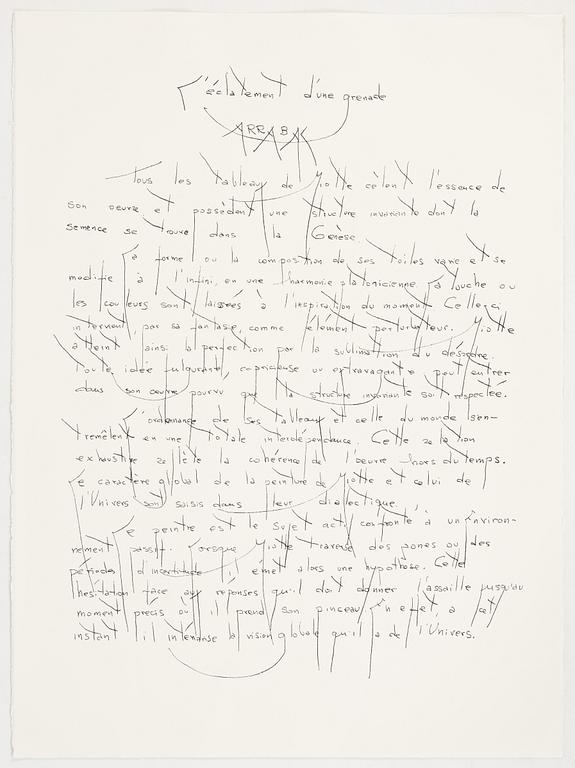 L'éclatement d'une grenade
ARRABAL
Tous les tableaux de Miotte cèlent l'essence de
son oeuvre et possèdent une structure invariante dont la
semence se trouve dans la Genèse.
La forme ou la composition de ses toiles varie et se
modifie à l'infini, en une harmonie platonicienne. La touche ou
les couleurs sont laissées à l'inspiration du moment. Celle-ci
intervient, par sa fantaisie, comme élément perturbateur. Miotte
atteint ainsi la perfection par la sublimation du désordre.
Toute idée fulgurante, capricieuse ou extravagante peut entrer
dans son oeuvre pourvu que la structure invariante soit respectée.
L'ordonnance de ses tableaux et celle du monde s'en-
tremêlent en une totale interdépendance. Cette relation
exhaustive relète la cohérence de l'oeuvre hors du temps.
Le caractère global de la peinture de Miotte et celui de
l'Univers sont saisis dans leur dialectique.
Le peintre est le sujet actif confronté à un environ-
nement passif. Lorsque Miotte traverse des zones ou des
périodes d'incertitude il émet alors une hypothèse. Cette
hésitation face aux réponses qu'il doit donner l'assaille jusqu'au
moment précis où il prend son pinceau. En effet, à cet
instant il intériorise la vision globale qu'il a de l'Univers.